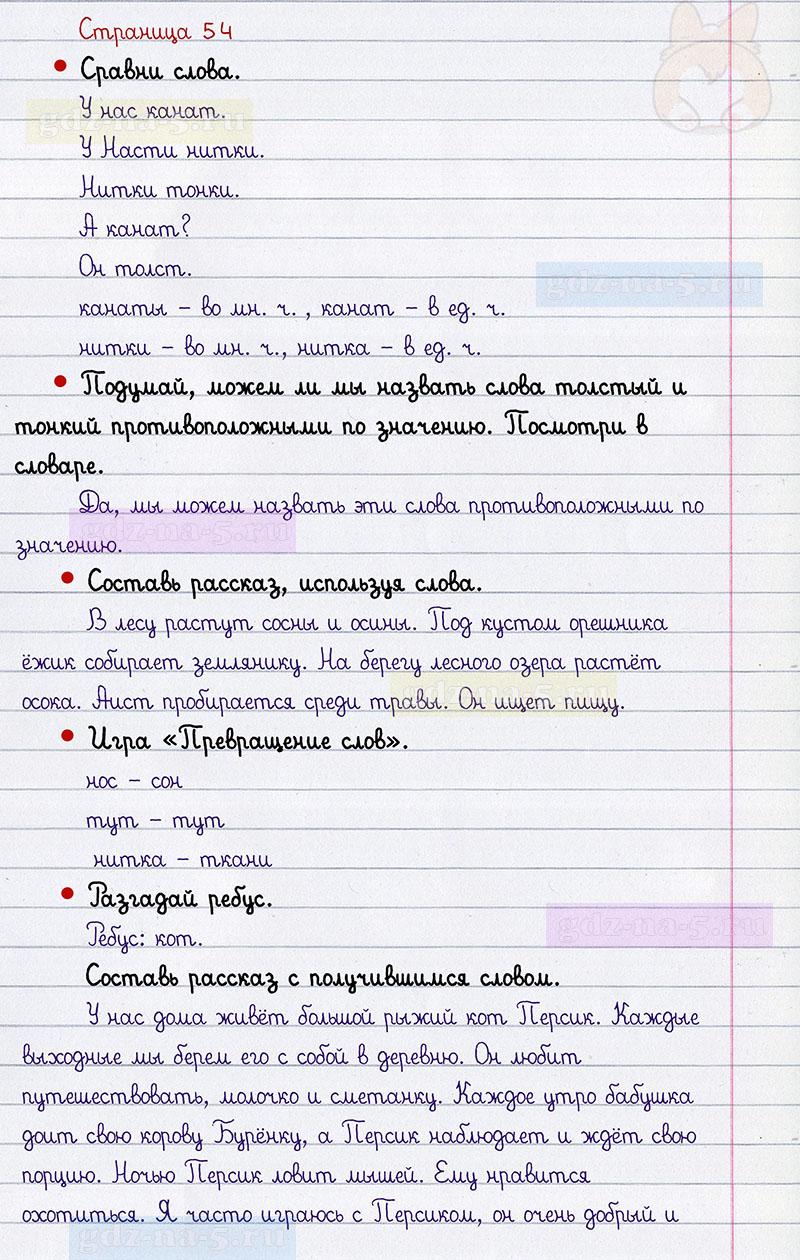 Страница 54
• Сравни слова.
У нас канат.
gdz-na-5.ru
У Насти нитки.
Нитки тонки.
А канат?
Он толст.
gdz-na-5.ru
канаты – во мн. ч. , канат – в ед. ч.
нитки – во мн. ч., нитка – в ед. ч.
• Подумай, можем ли мы назвать слова толстый и
тонкий противоположными по значению. Посмотри в
словаре.
Да, мы можем назвать эти слова противоположными по
gdz-na-5.ru
значению.
• Составь рассказ, используя слова.
В лесу растут сосны и осины. Под кустом орешника
ёжик собирает землянику. На берегу лесного озера растёт
gdz-na-5.ru
осока. Аист пробирается среди травы. Он ищет пищу.
• Игра «Превращение слов».
нос – сон
тут – тут
нитка – ткани
• Разгадай ребус.
gdz-na-5.ru
Ребус: кот.
Составь рассказ с получившимся словом.
У нас дома живёт большой рыжий кот Персик. Каждые
выходные мы берем его с собой в деревню. Он любит
путешествовать, молочко и сметанку. Каждое утро бабушка
доит свою корову Бурёнку, а Персик наблюдает и ждёт свою
порцию. Ночью Персик ловит мышей. Ему нравится
охотиться. Я часто играюсь с Персиком, он очень добрый и
gdz-na-5.ru